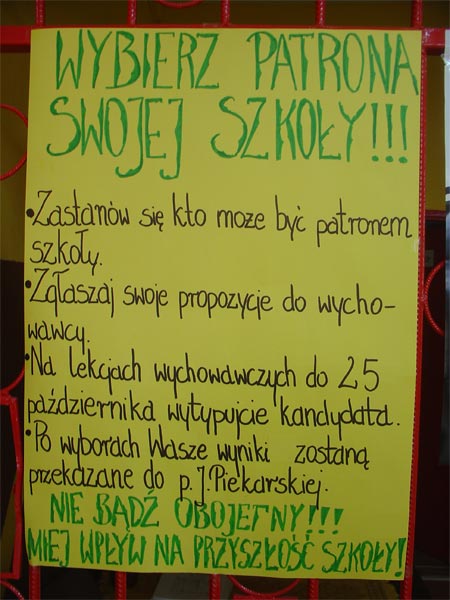 WYBIERZ PATRONA
SWOJEJ SZKOŁY!!!
•Zastanów się kto może być patronem
szkoły.
•Zgłaszaj swoje propozycje do wycho-
wawcy.
•Na lekcjach wychowawczych do 25
października wytypujcie kandydata.
•Po wyborach Wasze wyniki zostaną
przekazane do p. J. Piekarskiej.
NIE BĄDŹ OBOJĘTNY!!!
MIEJ WPŁYW NA PRZYSZŁOŚĆ SZKOŁY!